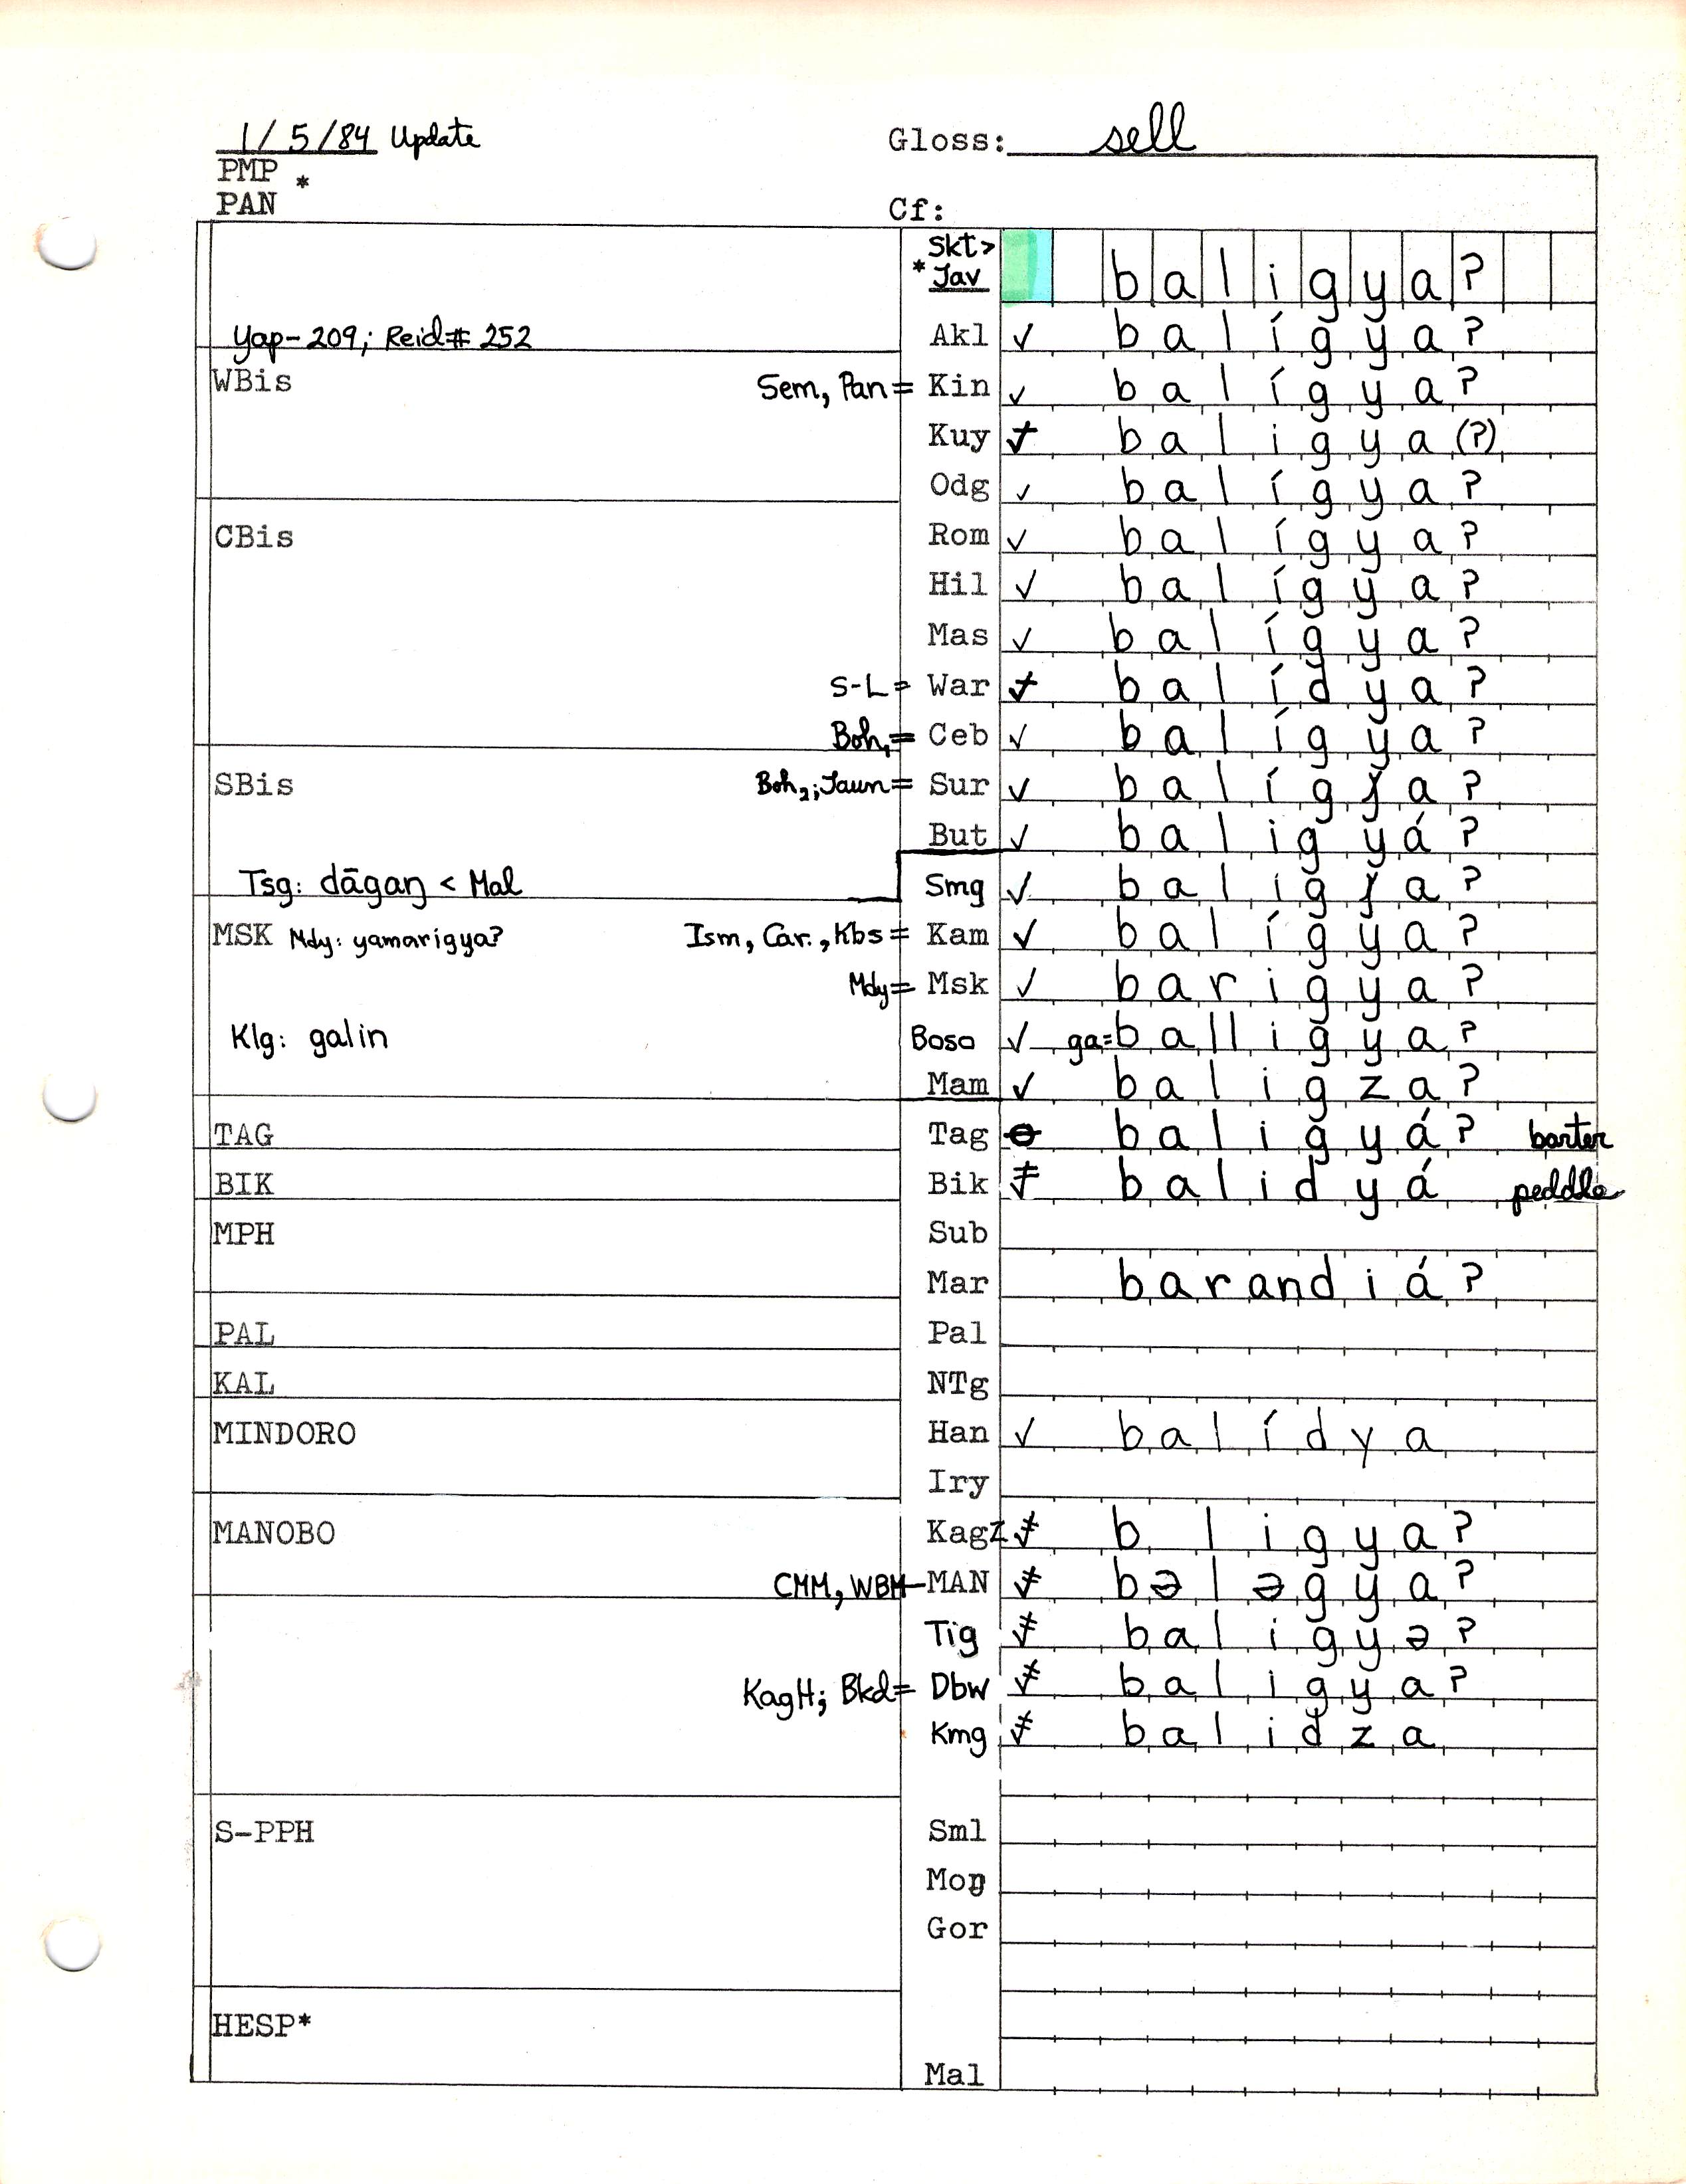 1/5/84 Update Gloss: sell
PMP *
PAN Cf:
Skt>
*Jav baligya?
Yap-209; Reid# 252 Akl ✓ balígya?
WBis Sem, Pan= Kin ✓ balígya?
Kuy baligya(?)
Odg ✓ balígya?
CBis Rom ✓ balígya?
Hil ✓ balígya?
Mas ✓ balígya?
S-L= War balídya?
Boh₁= Ceb ✓ balígya?
SBis Boh₂; Jaun= Sur ✓ balígɟa?
But ✓ baligyá?
Tsg: dāgaŋ < Mal Smg ✓ baligɟa?
MSK Mdy: yamarigya? Ism, Car., Kbs= Kam ✓ balígya?
Mdy= Msk ✓ barigya?
Klg: galin Boso ✓ ga=balligya?
Mam ✓ baligza?
TAG Tag baligyá? barter
BIK Bik balidyá peddle
MPH Sub
Mar barandiá?
PAL Pal
KAL NTg
MINDORO Han ✓ balídya
Iry
MANOBO KagZ b ligya?
CMM, WBM-MAN bələgya?
Tig baligyə?
KagH; Bkd= Dbw baligya?
Kmg balidza
S-PPH Sml
Moŋ
Gor
HESP*
Mal